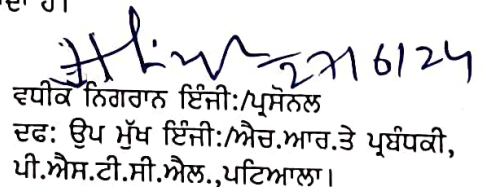 ਦਾ ਹੈ।
27/6/24
ਵਧੀਕ ਨਿਗਰਾਨ ਇੰਜੀ:/ਪ੍ਰਸੋਨਲ
ਦਫ: ਉਪ ਮੁੱਖ ਇੰਜੀ:/ਐਚ.ਆਰ.ਤੇ ਪ੍ਰਬੰਧਕੀ,
ਪੀ.ਐਸ.ਟੀ.ਸੀ.ਐਲ.,ਪਟਿਆਲਾ।